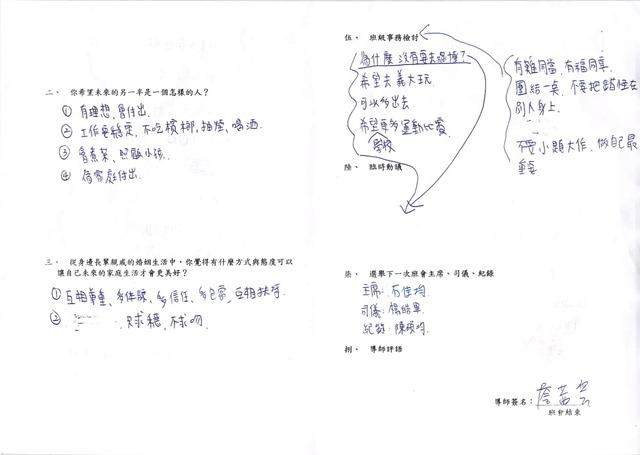 二、 你希望未來的另一半是一個怎樣的人?
① 有理想、會付出.
② 工作要穩定、不吃檳榔、抽煙、喝酒.
③ 會煮菜、照顧小孩.
④ 為家庭付出.
三、 從身邊長輩親戚的婚姻生活中,你覺得有什麼方式與態度可以
讓自己未來的家庭生活才會更美好?
① 互相尊重、多体諒、多信任、多包容、互相扶持.
② 只求穩、不求吻.
伍、 班級事務檢討
為什麼沒有要去綠博?
希望去義大玩
可以多出去
希望更多運動比賽
學校
有難同當,有福同享.
團結一點,不要把錯怪在
別人身上.
不要小題大作,做自己最
重要
陸、 臨時動議
柒、 選舉下一次班會主席、司儀、紀錄
主席:
司儀:
紀錄: 陳
捌、 導師評語
導師簽名:
班會結束